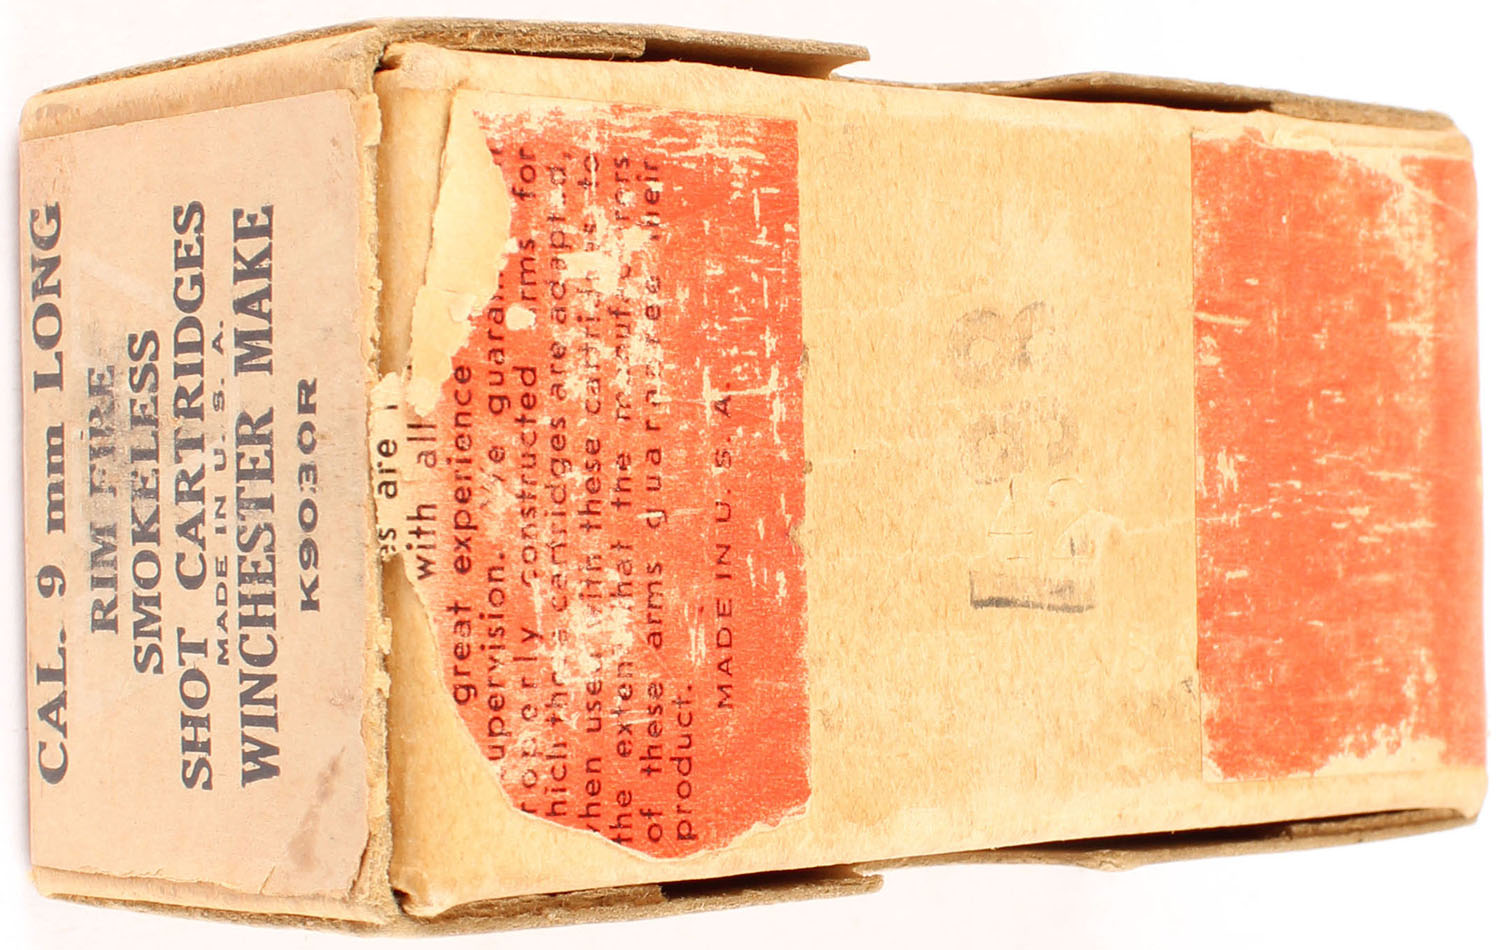 CAL. 9 mm LONG
RIM FIRE
SMOKELESS
SHOT CARTRIDGES
MADE IN U. S. A.
WINCHESTER MAKE
K9030R
es are
with all
great experience
upervision. We guaran
roperly constructed arms for
hich these cartridges are adapted,
hen used with these cartridges to
the extent that the manufacturers
of these arms guarantee their
product.
MADE IN U. S. A.